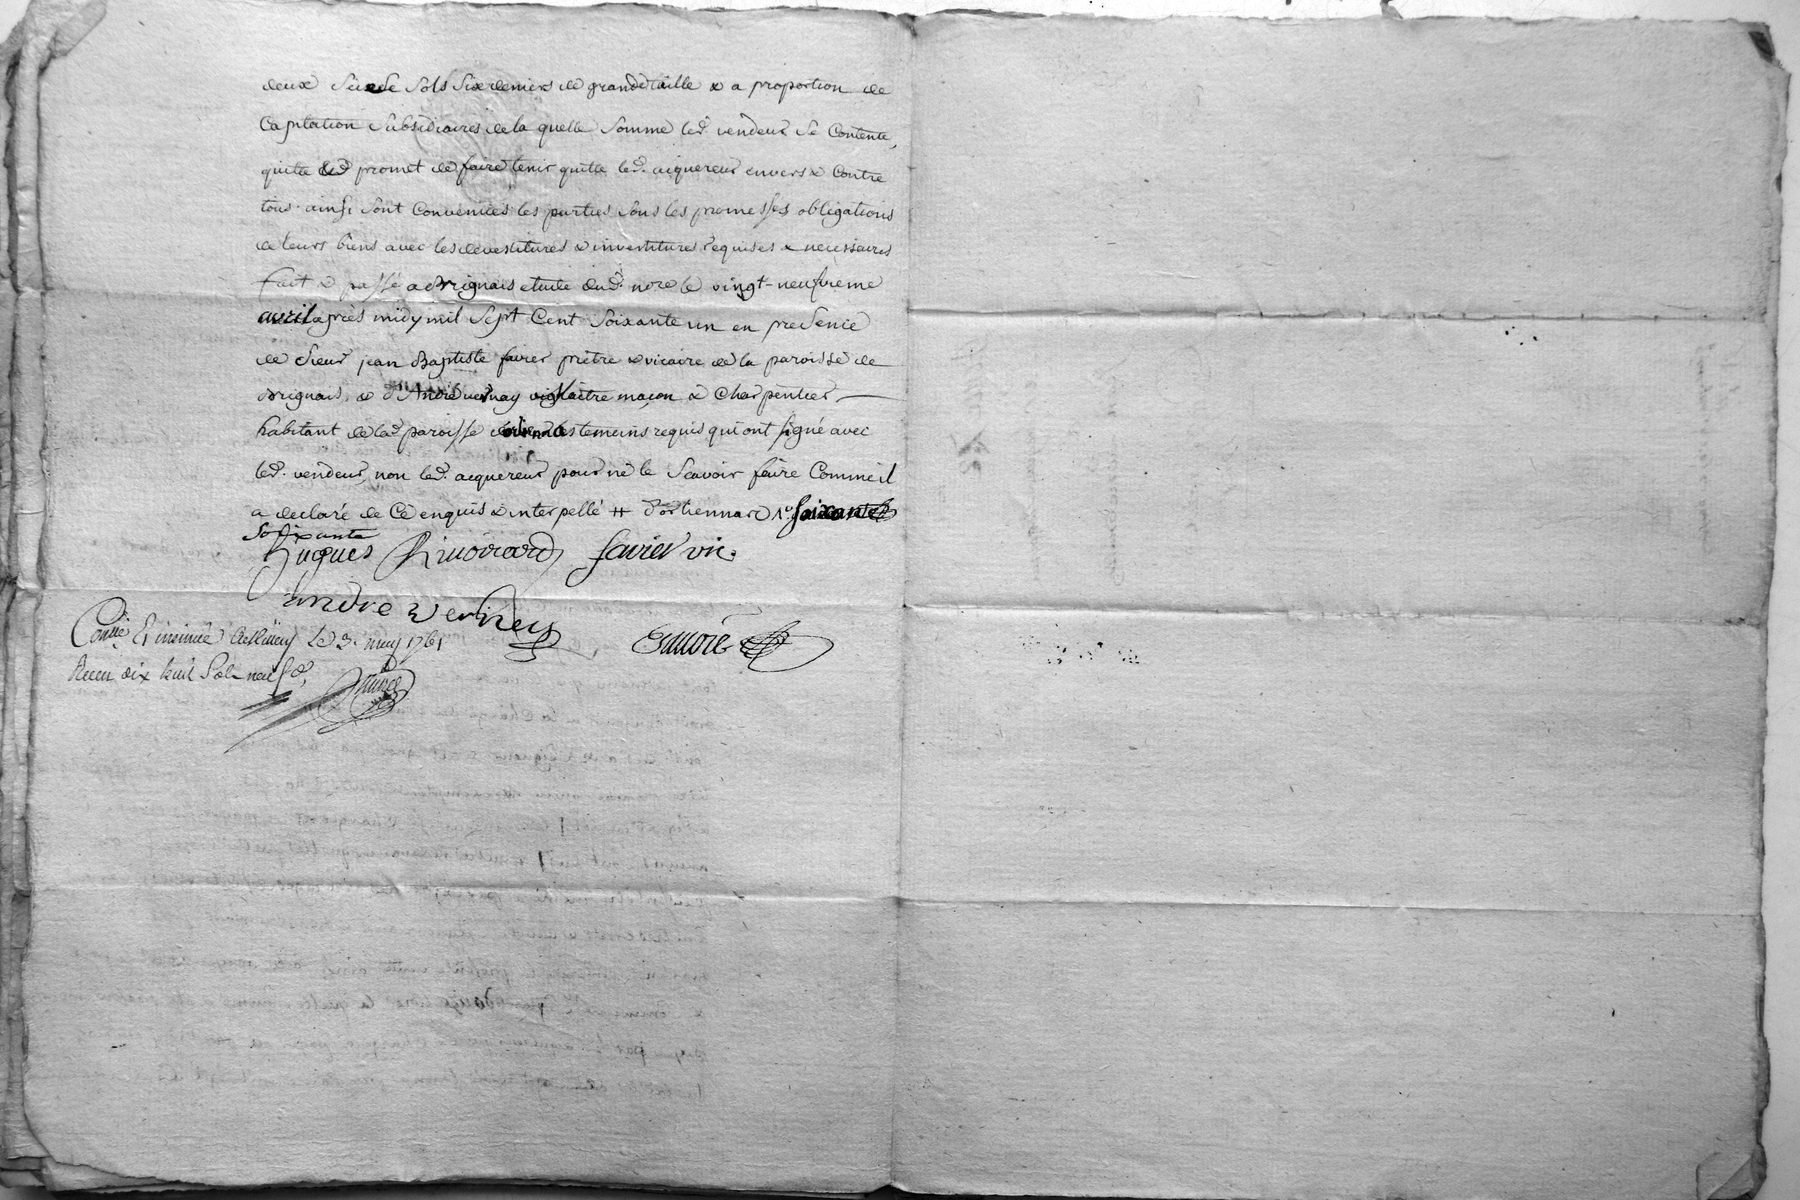 deux Sols Six deniers de grande taille & a proportion de
Capitation Subsidiaires de la quelle Somme led. vendeur Se Contente,
quitte & promet de faire tenir quitte led. aiquereur envers & Contre
tous. ainsi Sont Convenües les parties Sous les promesses obligations
de leurs biens avec les devestitures & investitures requises & necessaires
fait & passé a Brignais etude dud. nore le vingt-neufvieme
avril après midy mil Sept Cent Soixante un en presence
de Sieur jean Baptiste favier prètre & vicaire de la paroisse de
Brignais, & d'André vernay maitre maçon & Charpentier
habitant de lad. paroisse temoins requis qui ont signé avec
led. vendeur, non led. acquereur pour ne le Scavoir faire Comme il
a declaré de Ce enquis & interpellé # d'orliennas
Soixante
hugues favier vic.
andre verney
Con.le Et insinué Le 3. may 1761
Receu dix huit Sols neuf d.